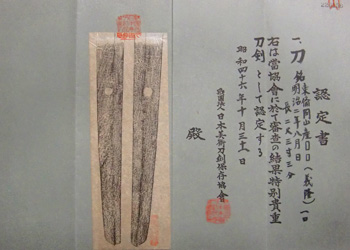 認定書
一、刀 銘 東備岡山産〇〇(義隆) 一口
明治二年八月日
長二尺三寸三分
右は當協會に於て審査の結果特別貴重
刀剣として認定する
昭和四十六年十月三十一日
財団法人日本美術刀剣保存協會
殿